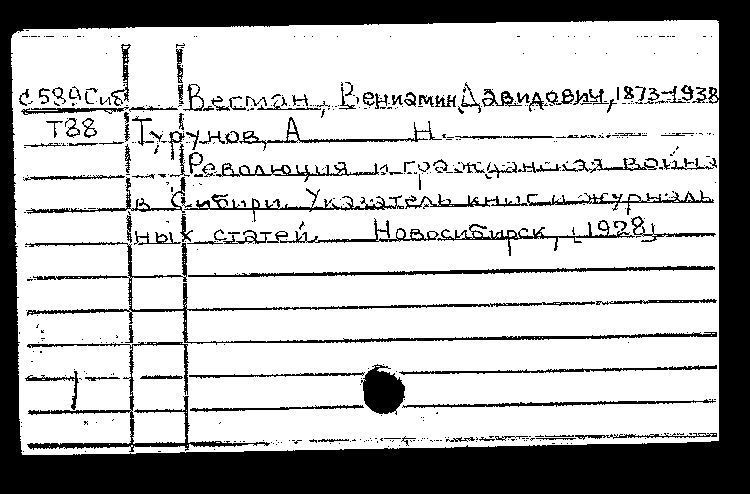 С589Сиб Вегман, Вениамин Давидович, 1873-1938
Т88 Турунов, А Н.
Революция и гражданская война
в Сибири. Указатель книг и журналь
ных статей. Новосибирск, [1928]